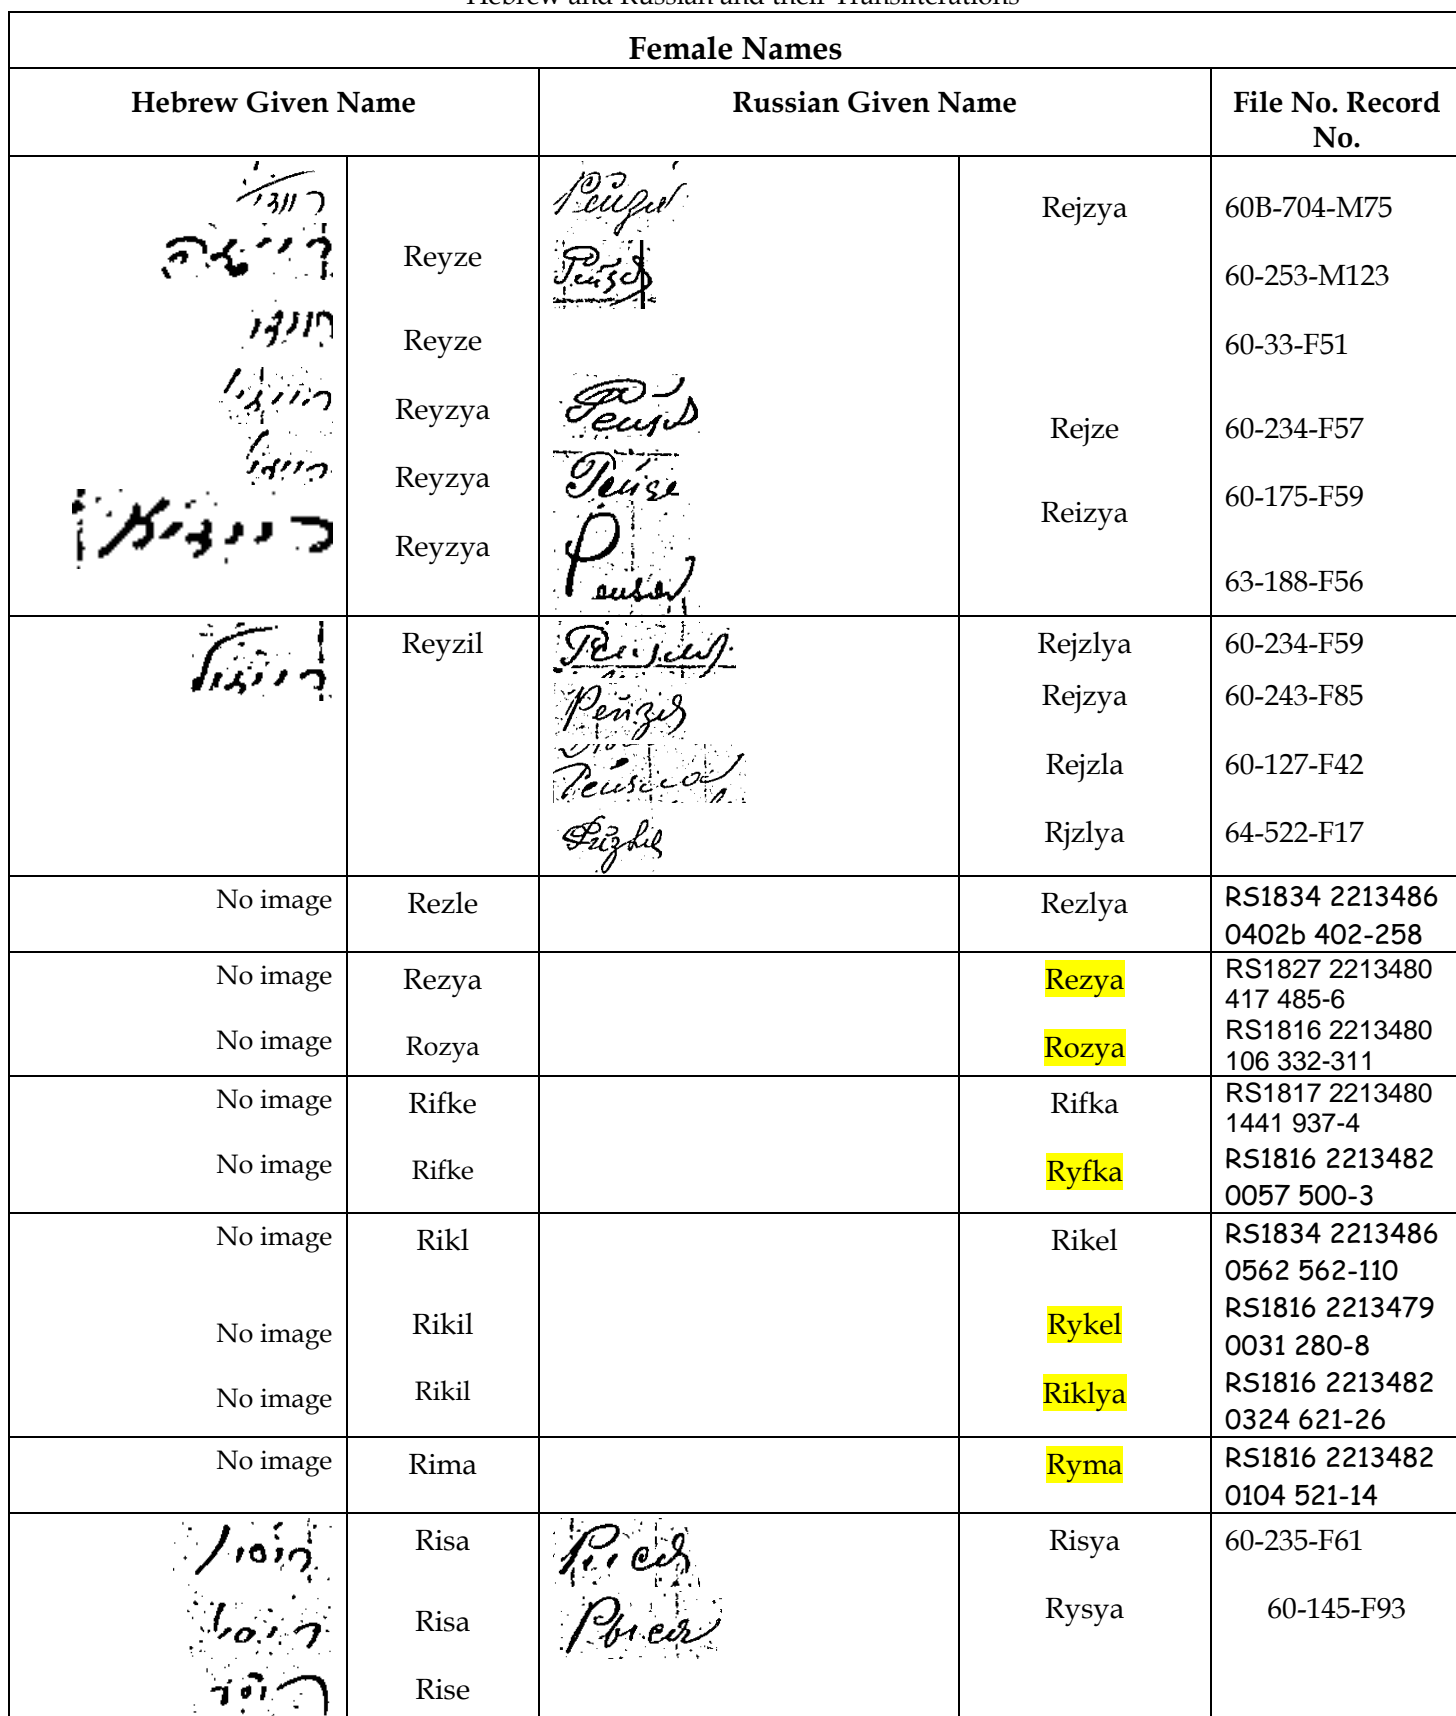 Hebrew and Russian and their Transliterations
Female Names
Hebrew Given Name Russian Given Name File No. Record
No.
Rejzya 60B-704-M75
Reyze
60-253-M123
Reyze 60-33-F51
Reyzya Rejze 60-234-F57
Reyzya Reizya 60-175-F59
Reyzya
63-188-F56
Reyzil Rejzlya 60-234-F59
Rejzya 60-243-F85
Rejzla 60-127-F42
Rjzlya 64-522-F17
No image Rezle Rezlya RS1834 2213486
0402b 402-258
No image Rezya Rezya RS1827 2213480
417 485-6
No image Rozya Rozya RS1816 2213480
106 332-311
No image Rifke Rifka RS1817 2213480
1441 937-4
No image Rifke Ryfka RS1816 2213482
0057 500-3
No image Rikl Rikel RS1834 2213486
0562 562-110
No image Rikil Rykel RS1816 2213479
0031 280-8
No image Rikil Riklya RS1816 2213482
0324 621-26
No image Rima Ryma RS1816 2213482
0104 521-14
Risa Risya 60-235-F61
Risa Rysya 60-145-F93
Rise